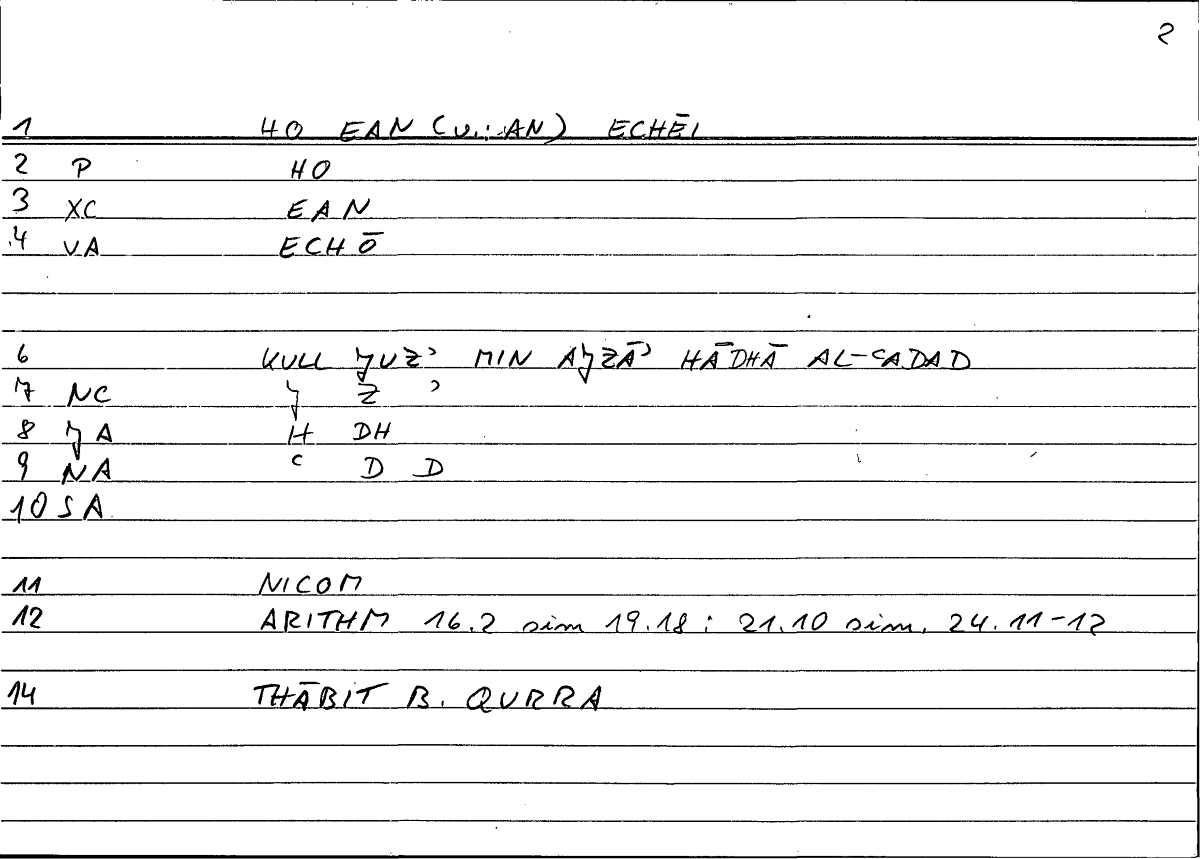 2
1 HO EAN (v.: AN) ECHĒI
2 P HO
3 XC EAN
4 VA ECHŌ
6 KULL JUZʾ MIN AJZĀʾ HĀDHĀ AL-ʿADAD
7 NC J Z ʾ
8 JA H DH
9 NA ʿ D D
10 SA
11 NICOM
12 ARITHM 16.2 sim 19.18 ; 21.10 sim. 24.11-12
14 THĀBIT B. QURRA